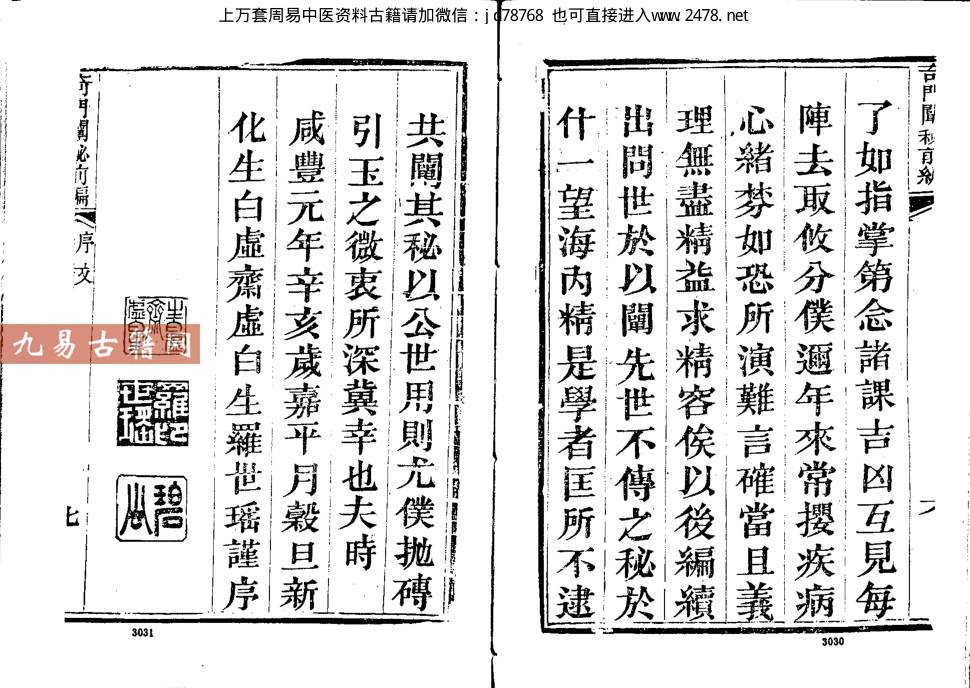 上万套周易中医资料古籍请加微信：jd78768 也可直接进入www.2478.net
奇門闡秘前編
了如指掌第念諸課吉凶互見每
陣去取攸分僕邇年來常攖疾病
心緒棼如恐所演難言確當且義
理無盡精益求精容俟以後編續
出問世於以闡先世不傳之秘於
什一望海內精是學者匡所不逮
3030
共闡其秘以公世用則尤僕拋磚
引玉之微衷所深冀幸也夫時
咸豐元年辛亥歲嘉平月穀旦新
化生白虛齋虛白生羅世瑤謹序
羅世瑤印
碧山
奇門闡秘前編
序文
七
3031
九易古籍网